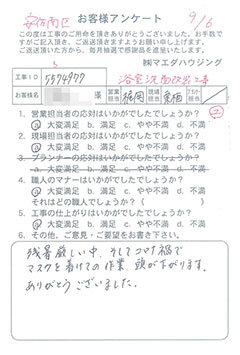 安佐南区
お客様アンケート
9/6
この度は工事のご用命を頂きありがとうございました。お手数で
すがご記入頂き、ご送付頂きますようお願い申し上げます。
ご送付頂きましたら、毎月抽選で感謝品を進呈いたします。
㈱マエダハウジング
工事ID 5574977 浴室洗面改装工事
お客様名 様 営業担当 福岡 現場担当
1. 営業担当者の応対はいかがでしたでしょうか?
a 大変満足 b. 満足 c. やや不満 d. 不満
2. 現場担当者の応対はいかがでしたでしょうか?
a 大変満足 b. 満足 c. やや不満 d. 不満
3. プランナーの応対はいかがでしたでしょうか?
a. 大変満足 b. 満足 c. やや不満 d. 不満
4. 職人のマナーはいかがでしたでしょうか?
a 大変満足 b. 満足 c. やや不満 d. 不満
それはどの職人でしょうか?( )
5. 工事の仕上がりはいかがでしたでしょうか?
a 大変満足 b. 満足 c. やや不満 d. 不満
6. その他、ご意見・ご要望をお書き下さい。
残暑厳しい中、そしてコロナ禍で
マスクを着けての作業、頭が下がります。
ありがとうございました。